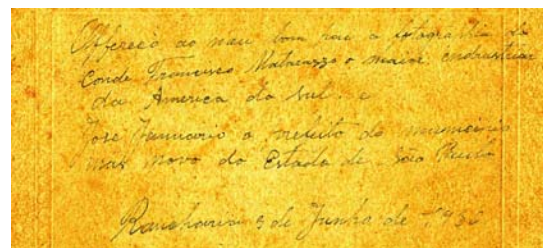 Offereço ao meu bom pae a fotographia do
Conde Francisco Matarazzo o maior endustrial
da America do Sul e
José Januario o prefeito do municipio
mas novo do Estado de São Paulo
Rancharia 5 de Junho de 1936